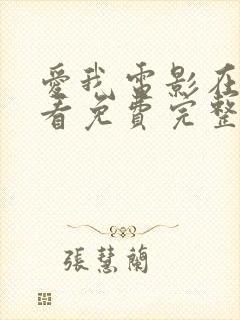 愛我電影在
看免費完整
張慧蘭